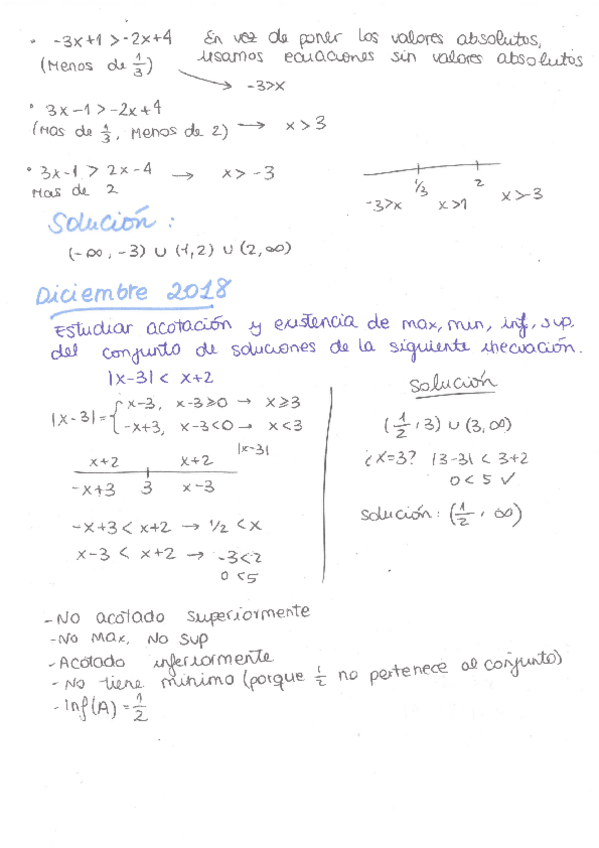 · -3x+1 > -2x+4 En vez de poner los valores absolutos,
(Menos de 1/3) usamos ecuaciones sin valores absolutos
→ -3>x
· 3x-1 > -2x+4
(Mas de 1/3, Menos de 2) → x > 3
· 3x-1 > 2x-4 → x > -3
Mas de 2
1/3 2
-3>x x>1 x>-3
Solución:
(-∞, -3) ∪ (1,2) ∪ (2,∞)
Diciembre 2018
Estudiar acotación y existencia de max, min, inf, sup.
del conjunto de soluciones de la siguiente inecuación.
|x-3| < x+2
|x-3| = { x-3, x-3≥0 → x≥3
-x+3, x-3<0 → x<3
|x-3|
x+2 x+2
-x+3 3 x-3
-x+3 < x+2 → 1/2 < x
x-3 < x+2 → -3<2
0<5
Solución
(1/2, 3) ∪ (3,∞)
¿x=3? |3-3| < 3+2
0 < 5 ✓
Solución: (1/2, ∞)
- No acotado superiormente
- No Max, No Sup
- Acotado inferiormente
- No tiene mínimo (porque 1/2 no pertenece al conjunto)
- Inf(A) = 1/2